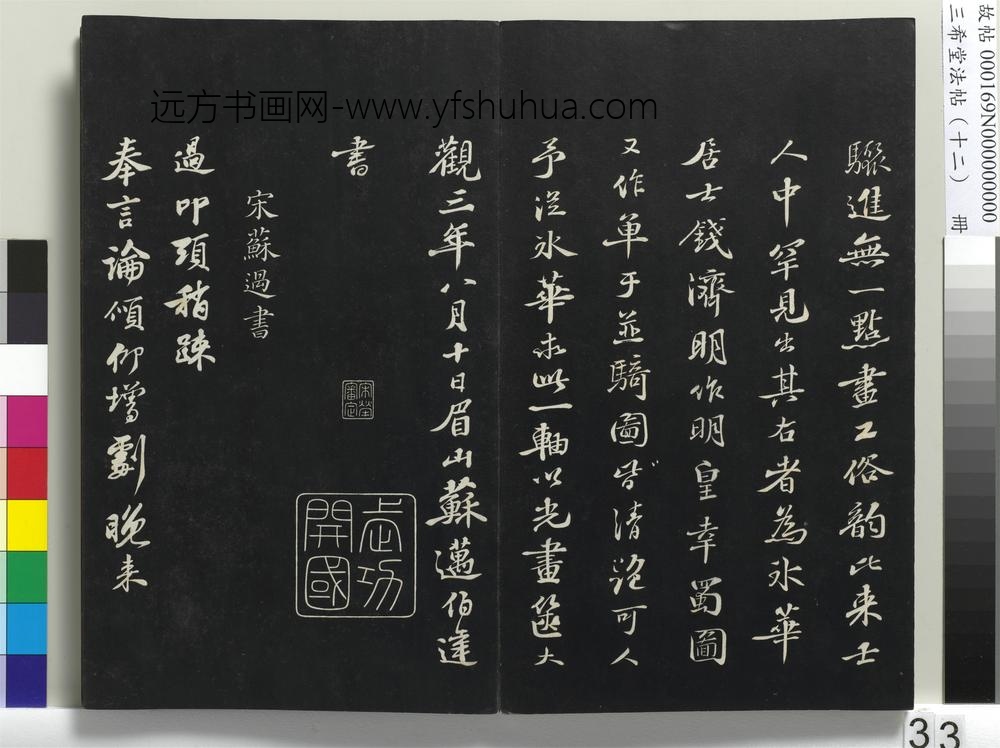 驟進無一點畫工俗韵比来士
人中罕見出其右者為氷華
居士錢濟明作明皇幸蜀圖
又作単于並騎圖皆清絶可人
予從氷華求此一軸以光畫篋大
觀三年八月十日眉山蘇邁伯達
書
武功
開國
宋蘇過書
過叩頭稍疎
奉言論傾仰增劇晚来
远方书画网-www.yfshuhua.com
故帖 000169N000000000
三希堂法帖（十二） 冊
33